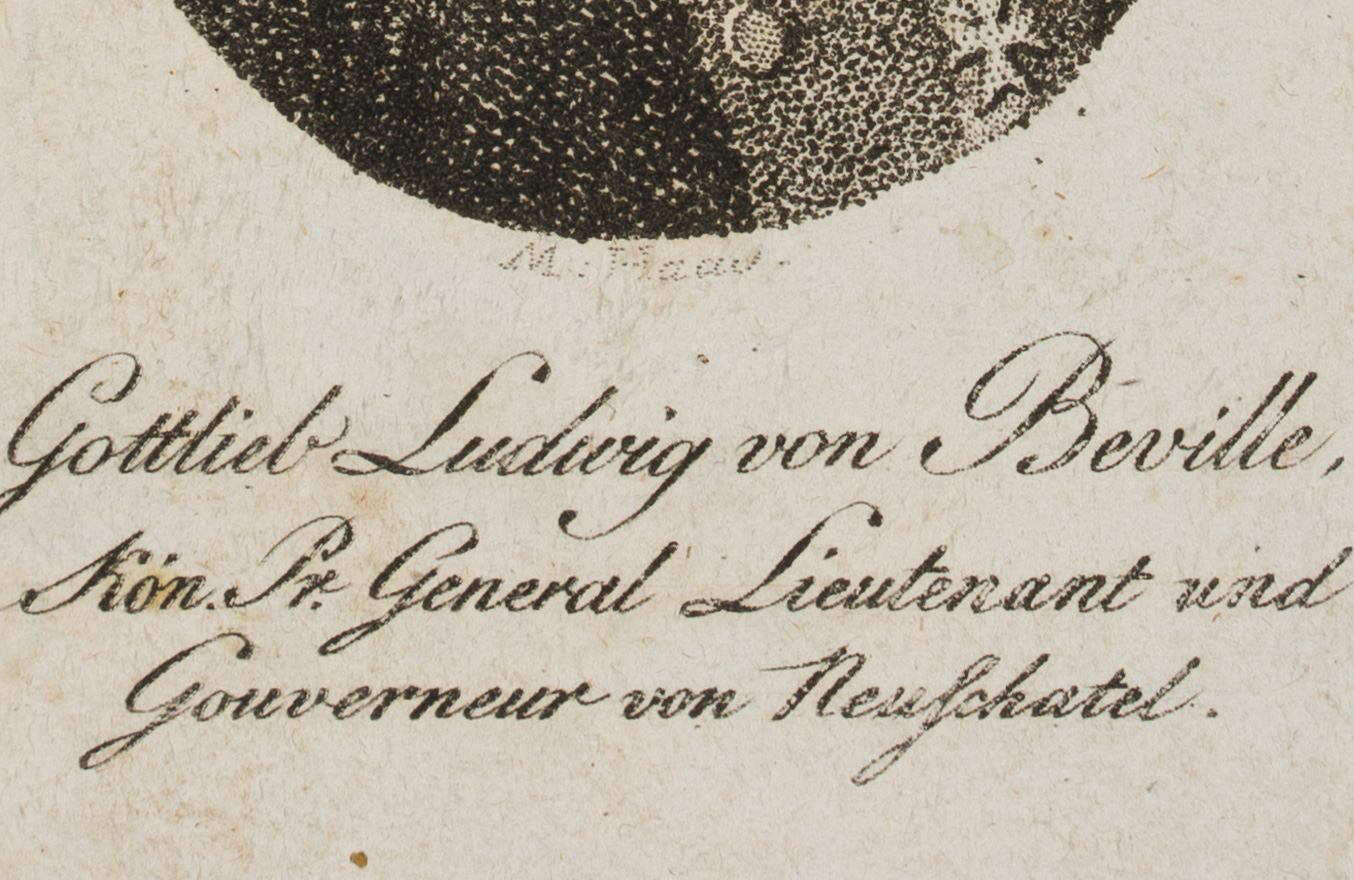 M. Haas.
Gottlieb Ludwig von Beville,
Kön. Pr. General Lieutenant und
Gouverneur von Neufchatel.